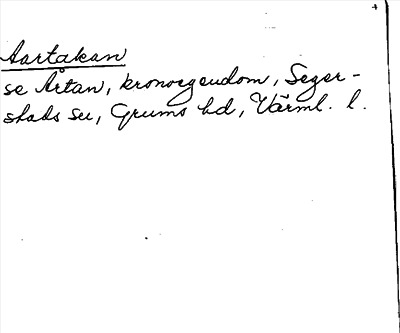 Aartakan
se Årtan, kronoegendom, Seger-
stads sn, Grums hd, Värml. l.